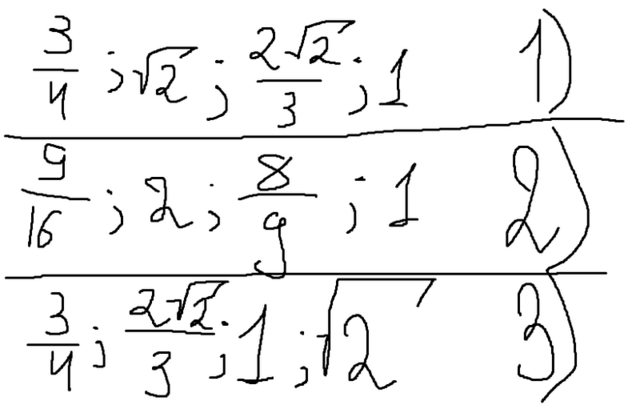 3/4 ; √2 ; 2√2/3 ; 1 1)
9/16 ; 2 ; 8/9 ; 1 2)
3/4 ; 2√2/3 ; 1 ; √2 3)